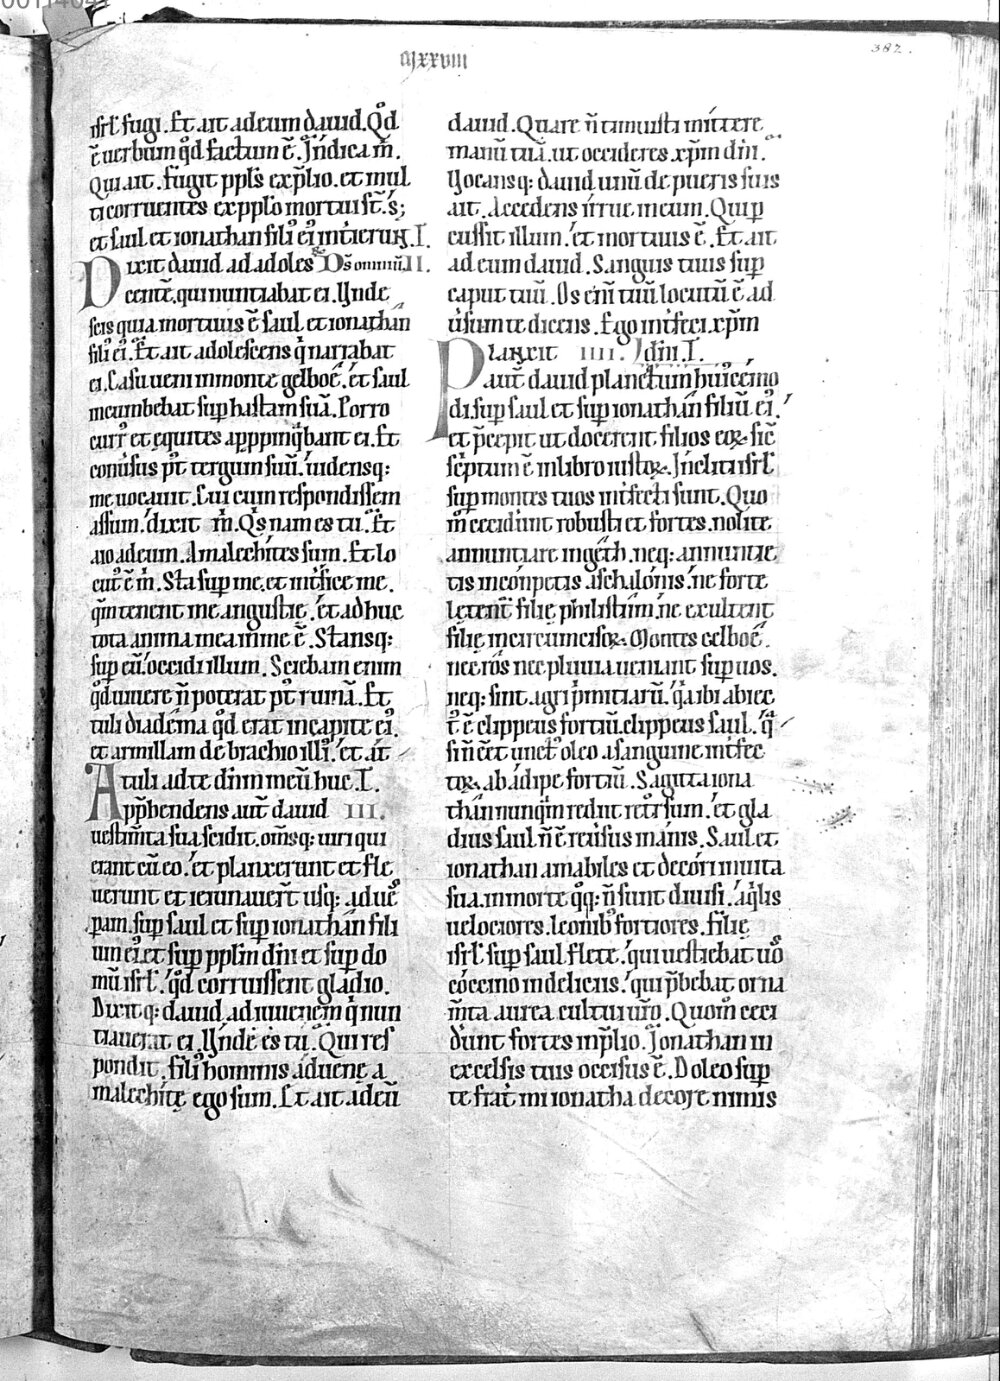 387.
isrł fugi. Et ait ad eum dauid. Qd̊
ē uerbum qd̊ factum ē. Indica m̄.
Qui ait. Fugit ppls̄ ex p̄lio. et mul
ti corruentes ex pplo mortui sī. s;
et saul et ionathan filī eī intierunt. I.
Dixit dauid ad adoles D̄s omniū. II.
centē. qui nuntiabat ei. Unde
scis quia mortuus ē saul et ionathan
filī eī. Et ait adolescens q̄ narrabat
ei. Casu ueni in monte gelboe. et saul
incumbebat sup hastam suā. Porro
curr̄ et equites apppinq̄bant ei. Et
conūsus p̄t tergum suū. uidensq:
me uocauit. Cui cum respondissem
assum. dixit m̄. Q̄s nam es tu. Et
aio ad eum. Amalechites sum. Et lo
cut̄ ē m̄. Sta sup me. et int̄fice me.
qm̄ tenent me angustię. et adhuc
tota anima mea in me ē. Stansq:
sup eū. occidi illum. Sciebam enim
qd̊ uiuere n̄ poterat p̄t ruinā. Et
tuli diadema qd̊ erat in capite eī.
et armillam de brachio illī. et āt
tuli ad te dn̄m meū huc. I.
Apphendens aut̄ dauid III.
uestimt̄a sua scidit. om̄sq: uiri qui
erant cū eo. et planxerunt et fle
uerunt et ieiunauer̄t usq: ad ues̄
pam. sup saul et sup ionathan fili
um eī. et sup pplm̄ dn̄i et sup do
mū isrł. qd̊ corruissent gladio.
Dixitq: dauid ad iuuenem q̄ nun
tiauerat ei. Unde es tu. Qui res
pondit. filī hominis aduenę a
malechitę ego sum. Et ait ad eū
dauid. Quare n̄ timuisti mittere
manū tuā. ut occideres xp̄m dn̄i.
Uocansq: dauid unū de pueris suis
ait. Accedens irrue in eum. Qui p
cussit illum. et mortuus ē. Et ait
ad eum dauid. Sanguis tuus sup
caput tuū. Os eni̅ tuū locutū ē ad
ūsum te dicens. Ego int̄feci xp̄m
Planxit IIII. dn̄i. I.
aut̄ dauid planctum huiccemo
di. sup saul et sup ionathan filiū eī.
et p̄cepit ut docerent filios eoꝝ. sic̄
sc̄ptum ē in libro iustoꝝ. Incliti isrł
sup montes tuos int̄fecti sunt. Quo
m̄ ceciderunt robusti et fortes. nolite
annuntiare in geth. neq: annuntie
tis in conpetis aschalonis. ne forte
letent̄ filię philistim. ne exultent
filię incircumcisoꝝ. Montes gelboe.
nec ros nec pluuia ueniant sup uos.
neq: sint agri p̄mitiarū. q̄a ibi abiec
t̄ ē clippeus fortiū. clippeus saul. q̄
si n̄ eēt unct̄ oleo. a sanguine int̄fec
toꝝ. ab adipe fortiū. Sagitta iona
than nunqm̄ rediit retrorsum. et gla
dius saul n̄ ē reūsus inanis. Saul et
ionathan amabiles et decori in uita
sua. in morte qq: n̄ sunt diuisi. aq̄lis
uelociores. leonib; fortiores. Filię
isrł sup saul flete. qui uestiebat uos
coccino in deliciis. qui p̄bebat orna
m̄ta aurea cultui ur̄o. Quom̄ ceci
derunt fortes in p̄lio. Ionathan in
excelsis tuis occisus ē. Doleo sup
te frat̄ mi ionatha decore nimis